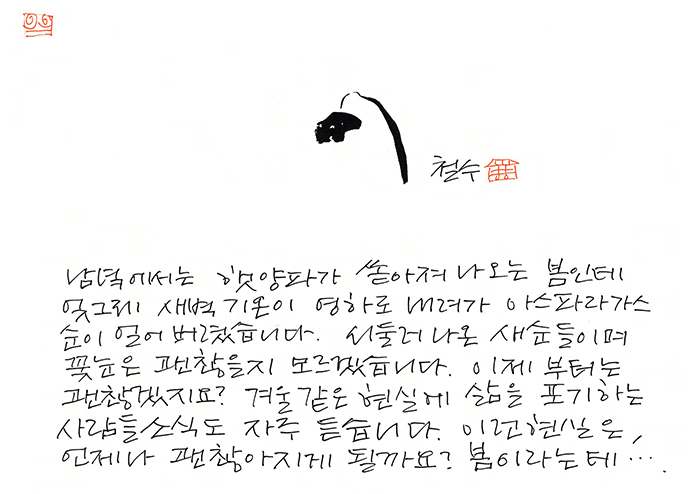 철수
남녘에서는 햇양파가 쏟아져 나오는 봄인데
엊그제 새벽기온이 영하로 내려가 아스파라가스
순이 얼어 버렸습니다. 서둘러 나온 새순들이며
꽃눈은 괜찮을지 모르겠습니다. 이제 부터는
괜찮겠지요? 겨울같은 현실에 삶을 포기하는
사람들 소식도 자주 듣습니다. 이런 현실은,
언제나 괜찮아지게 될까요? 봄이라는데….